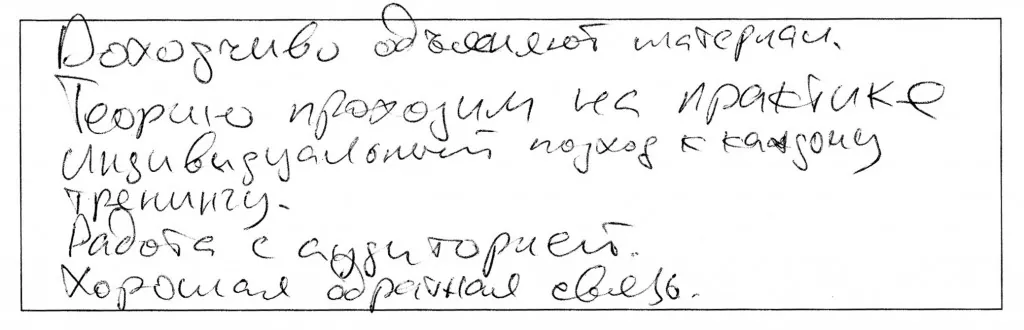 Доходчиво объясняют материал.
Теорию проходим на практике
индивидуальный подход к каждому
тренингу.
Работа с аудиторией.
Хорошая обратная связь.